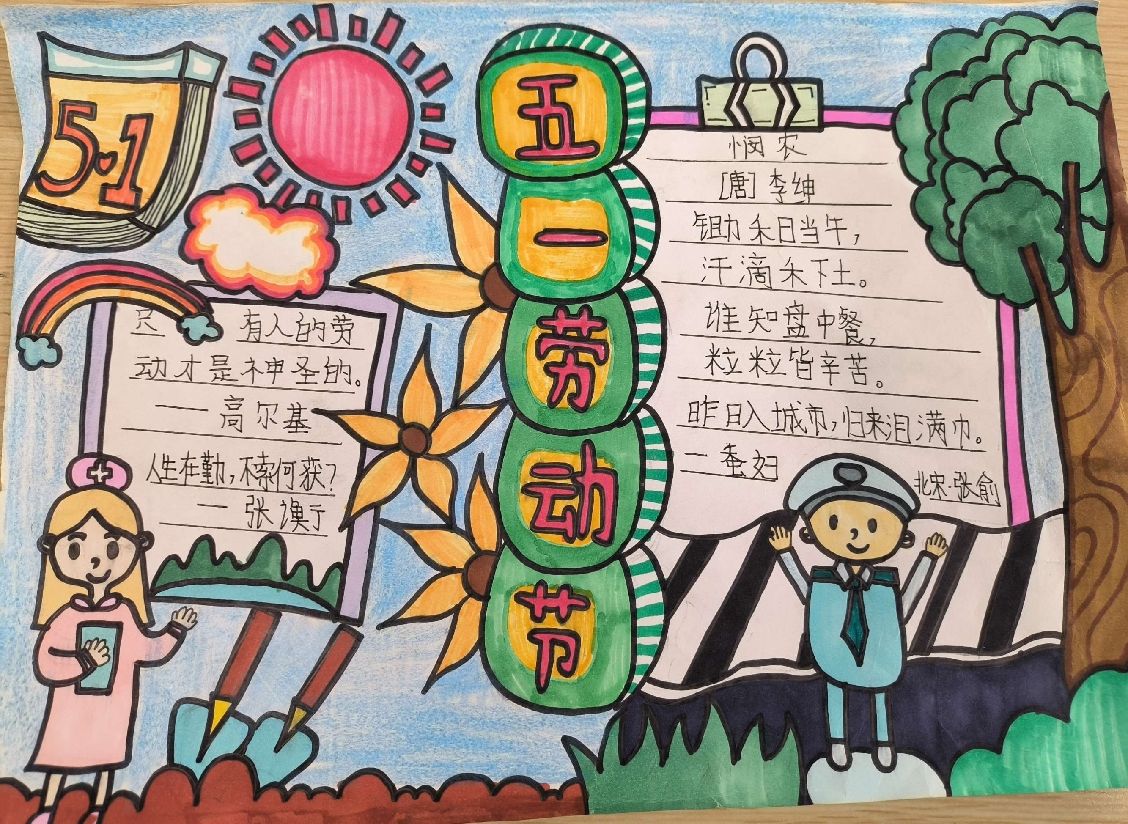 5.1
五一劳动节
只 有人的劳
动才是神圣的。
——高尔基
人生在勤，不索何获？
— 张谟于
悯农
[唐] 李绅
锄禾日当午，
汗滴禾下土。
谁知盘中餐，
粒粒皆辛苦。
昨日入城市，归来泪满巾。
—蚕妇
北宋·张俞